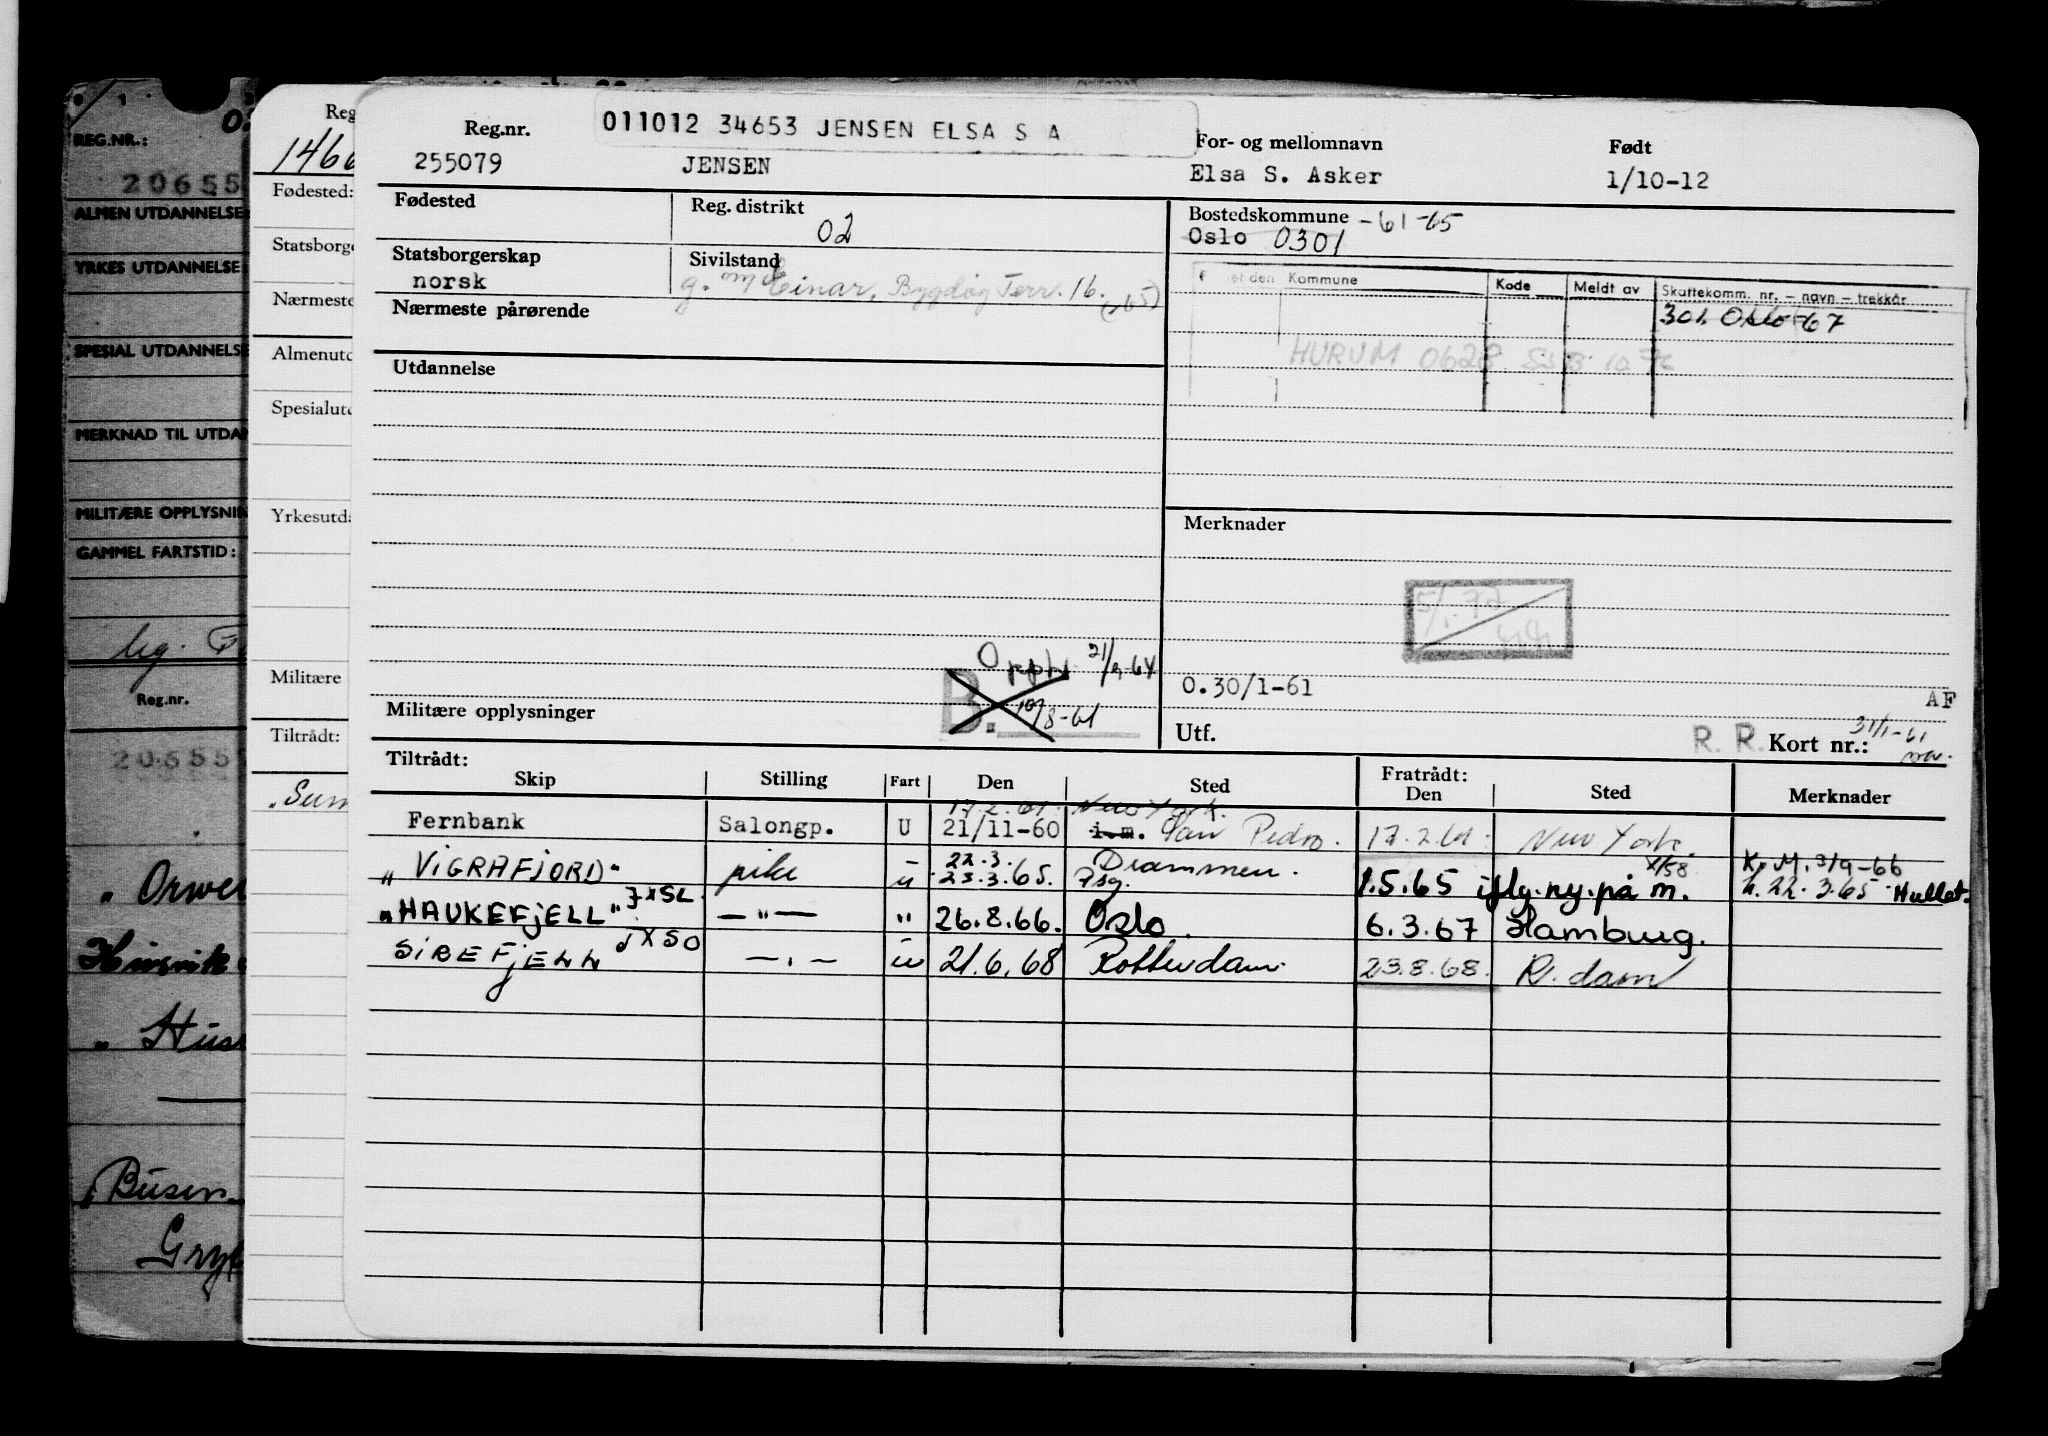 REG.NR.:
20655
ALMEN UTDANNELSE
YRKES UTDANNELSE
SPESIAL UTDANNELSE
MERKNAD TIL UTDAN
MILITÆRE OPPLYSNIN
GAMMEL FARTSTID:
Reg.nr.
20655
" Orwe
" Hus
Reg
Fødested:
Statsborge
Nærmeste
Almenutd
Spesialutd
Yrkesutda
Militære
Tiltrådt:
011012 34653 JENSEN ELSA S A
Reg.nr.
255079
JENSEN
For- og mellomnavn
Elsa S. Asker
Født
1/10-12
Fødested
Reg. distrikt
02
Bostedskommune -61-65
Oslo 0301
Statsborgerskap
norsk
Sivilstand
g. m/ Einar, Bygdøy Terr. 16. (65)
Nærmeste pårørende
Kommune Kode Meldt av Skattekomm. nr. – navn – trekkår
301 Oslo-67
HURUM 0628
Utdannelse
Merknader
21/9-64
B. 10/8-61
Militære opplysninger
0.30/1-61
AF
Utf.
R. R. Kort nr.: 31/1-61
Tiltrådt:
Skip Stilling Fart Den Sted
Fratrådt:
Den Sted Merknader
17.2.61. New York.
Fernbank Salongp. U 21/11-60 i.m. San Pedro. 17.2.61. New York.
22.3. Drammen. X/58 K. M. 3/9-66
"VIGRAFJORD" pike – u 23.3.65. Psg. 1.5.65 i fly.ny.på m. h. 22.3.65 Hullet.
"HAUKEFJELL" JXSL — " — " 26.8.66. Oslo. 6.3.67 Hamburg.
SIREFJELL JXSO — " — u 21.6.68 Rotterdam. 23.8.68. R.dam